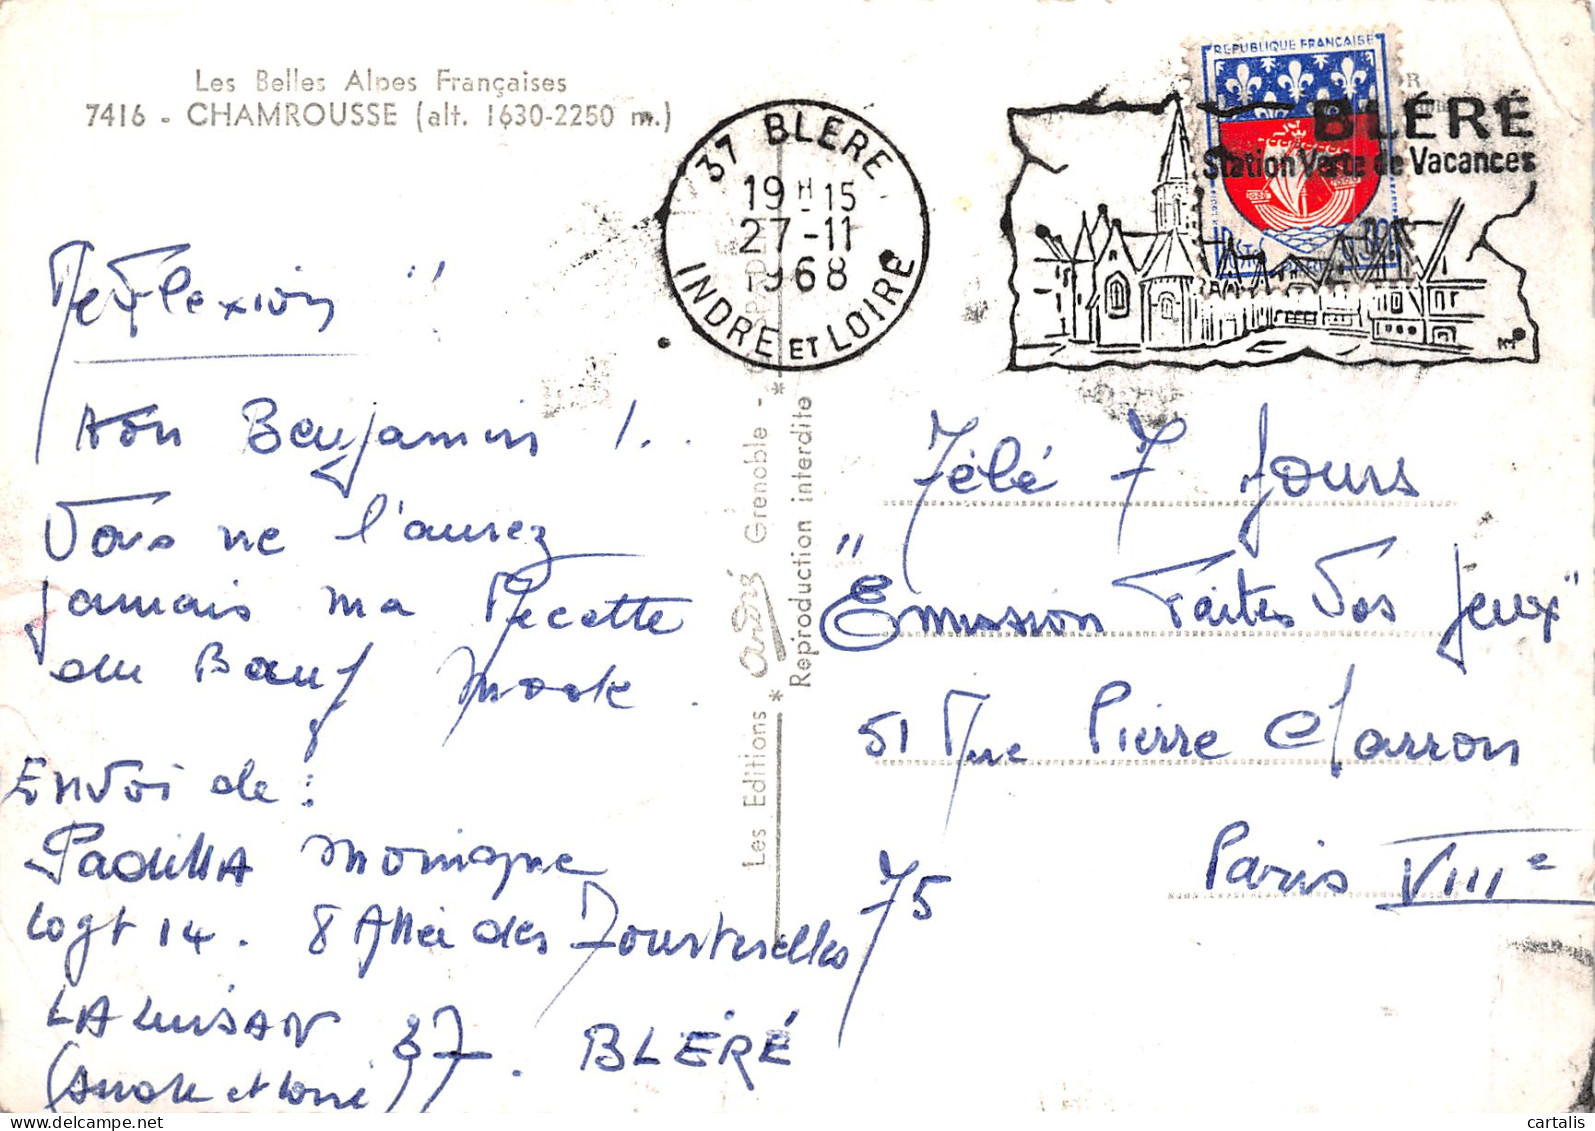 Les Belles Alpes Françaises
7416 - CHAMROUSSE (alt. 1630-2250 m.)
37 BLERE
19 H 15
27-11
1968
INDRE ET LOIRE
REPUBLIQUE FRANÇAISE
BLÉRÉ
Station Verte de Vacances
Reflexion !!
Non Benjamin !..
Vous ne l'aurez
jamais ma Recette
du Bœuf Mode.
Envoi de :
Padilla Monique
Logt 14. 8 Allée des Tourterelles
37. BLÉRÉ
(Indre et Loire)
Les Editions * André Grenoble - *
Reproduction interdite
Télé 7 Jours
"Emission Faites Vos Jeux"
51 Rue Pierre Charron
75 Paris VIIIe
cartalis